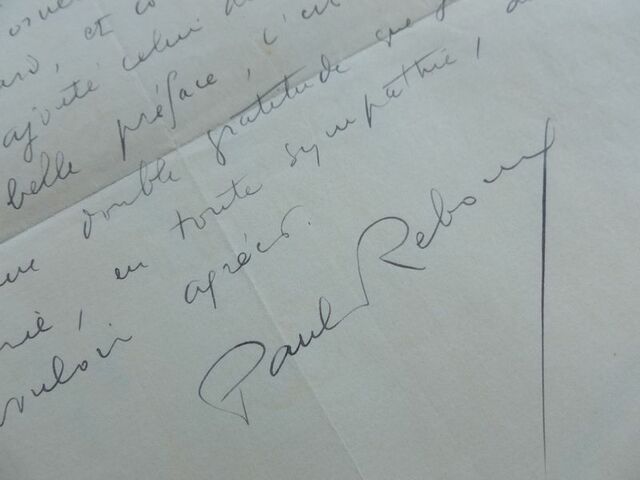 et
ajouté celui
belle préface, c'est
double gratitude que
, en toute sympathie,
vouloir agréer.
Paul Reboux